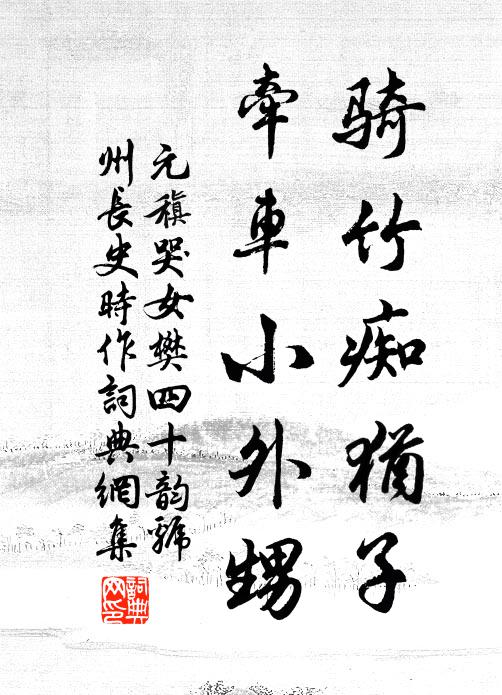 騎竹痴猶子
牽車小外甥
元稹哭女樊四十韵虢
州長史時作詞典網集
詞典網印